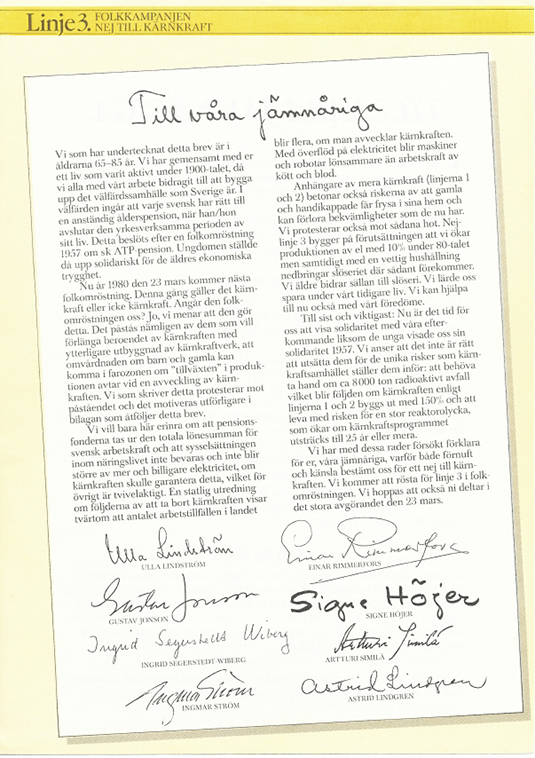 Linje 3. FOLKKAMPANJEN
NEJ TILL KÄRNKRAFT
Till våra jämnåriga
Vi som har undertecknat detta brev är i
åldrarna 65–85 år. Vi har gemensamt med er
ett liv som varit aktivt under 1900-talet, då
vi alla med vårt arbete bidragit till att bygga
upp det välfärdssamhälle som Sverige är. I
välfärden ingår att varje svensk har rätt till
en anständig ålderspension, när han/hon
avslutar den yrkesverksamma perioden av
sitt liv. Detta beslöts efter en folkomröstning
1957 om sk ATP-pension. Ungdomen ställde
då upp solidariskt för de äldres ekonomiska
trygghet.
Nu år 1980 den 23 mars kommer nästa
folkomröstning. Denna gång gäller det kärn-
kraft eller icke kärnkraft. Angår den folk-
omröstningen oss? Jo, vi menar att den gör
detta. Det påstås nämligen av dem som vill
förlänga beroendet av kärnkraften med
ytterligare utbyggnad av kärnkraftverk, att
omvårdnaden om barn och gamla kan
komma i farozonen om "tillväxten" i produk-
tionen avtar vid en avveckling av kärn-
kraften. Vi som skriver detta protesterar mot
påståendet och det motiveras utförligare i
bilagan som åtföljer detta brev.
Vi vill bara här erinra om att pensions-
fonderna tas ur den totala lönesumman för
svensk arbetskraft och att sysselsättningen
inom näringslivet inte bevaras och inte blir
större av mer och billigare elektricitet, om
kärnkraften skulle garantera detta, vilket för
övrigt är tvivelaktigt. En statlig utredning
om följderna av att ta bort kärnkraften visar
tvärtom att antalet arbetstillfällen i landet
blir flera, om man avvecklar kärnkraften.
Med överflöd på elektricitet blir maskiner
och robotar lönsammare än arbetskraft av
kött och blod.
Anhängare av mera kärnkraft (linjerna 1
och 2) betonar också riskerna av att gamla
och handikappade får frysa i sina hem och
kan förlora bekvämligheter som de nu har.
Vi protesterar också mot sådana hot. Nej-
linje 3 bygger på förutsättningen att vi ökar
produktionen av el med 10% under 80-talet
men samtidigt med en vettig hushållning
nedbringar slöseriet där sådant förekommer.
Vi äldre bidrar sällan till slöseri. Vi lärde oss
spara under vårt tidigare liv. Vi kan hjälpa
till nu också med vårt föredöme.
Till sist och viktigast: Nu är det tid för
oss att visa solidaritet med våra efter-
kommande liksom de unga visade oss sin
solidaritet 1957. Vi anser att det inte är rätt
att utsätta dem för de unika risker som kärn-
kraftsamhället ställer dem inför: att behöva
ta hand om ca 8 000 ton radioaktivt avfall
vilket blir följden om kärnkraften enligt
linjerna 1 och 2 byggs ut med 150% och att
leva med risken för en stor reaktorolycka,
som ökar om kärnkraftsprogrammet
utsträcks till 25 år eller mera.
Vi har med dessa rader försökt förklara
för er, våra jämnåriga, varför både förnuft
och känsla bestämt oss för ett nej till kärn-
kraften. Vi kommer att rösta för linje 3 i folk-
omröstningen. Vi hoppas att också ni deltar i
det stora avgörandet den 23 mars.
Ulla Lindström
ULLA LINDSTRÖM
Einar Rimmerfors
EINAR RIMMERFORS
Gustav Jonson
GUSTAV JONSON
Signe Höjer
SIGNE HÖJER
Ingrid Segerstedt Wiberg
INGRID SEGERSTEDT-WIBERG
Artturi Similä
ARTTURI SIMILÄ
Ingmar Ström
INGMAR STRÖM
Astrid Lindgren
ASTRID LINDGREN